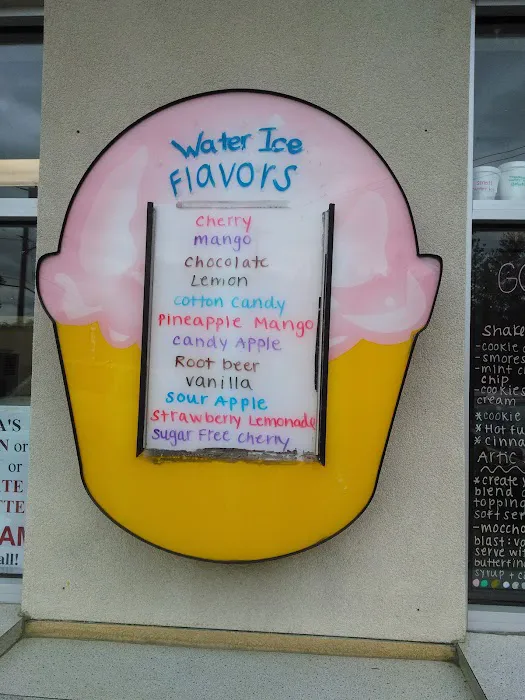 Water Ice
Flavors
cherry
mango
chocolate
Lemon
cotton candy
Pineapple Mango
candy Apple
Root beer
vanilla
sour Apple
strawberry Lemonade
sugar Free cherry
A'S
N or
or
TE
TTE
AM
all!
GO
shake
-cookie
-smores
-mint c
chip
-cookies
cream
*cookie
*Hot fu
*cinna
Artic
*create y
blend
topping
soft ser
-moccha
blast: va
serve wi
butterfin
syrup + c